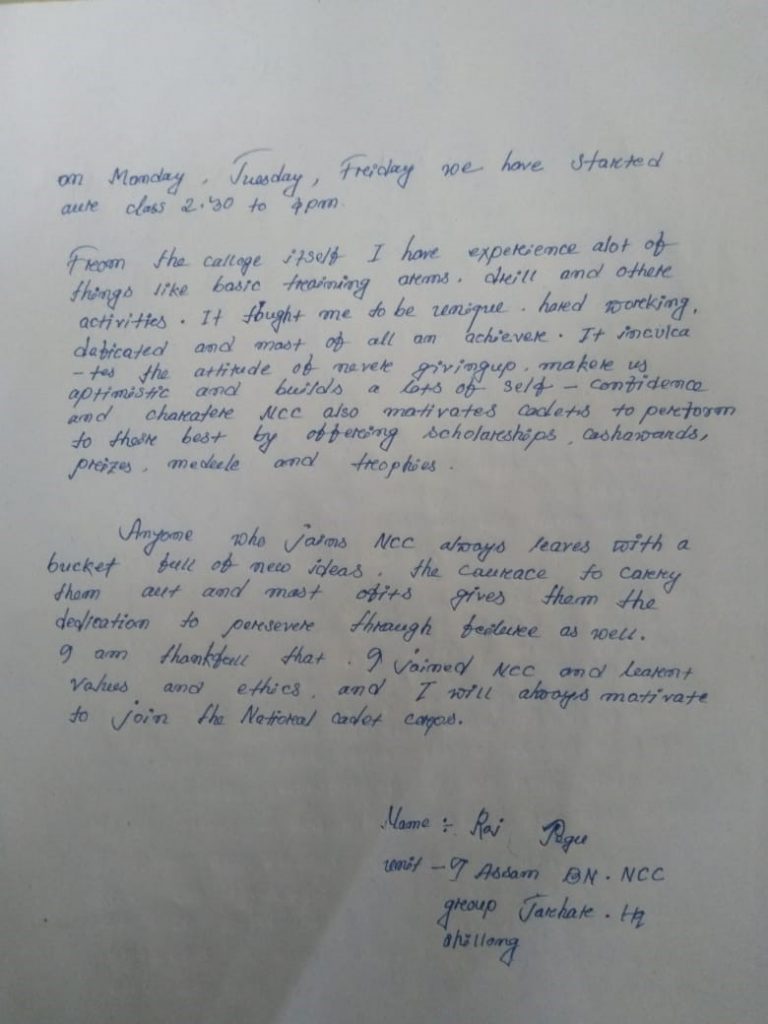 on Monday, Tuesday, Freiday we have started
aure class 2.30 to 4pm.
Freom the calloge itself I have expereience alot of
things like basic treaining arems. dreill and othere
activities. It tought me to be unique. hared woreking,
dedicated and mast of all an achievere. It inculca
-tes the attitude of nevere givingup. makere us
aptimistic and builds a lots of self - confidence
and charactere NCC also mativates cadets to pereform
to there best by offereing scholareships, cashawards,
preizes, medele and treophies.
Anyone who joins NCC always leaves with a
bucket full of new ideas. the caurace to carery
them aut and mast ofits gives them the
dedication to peresevere through feilure as well.
I am thankfull that. I joined NCC and learent
values and ethics. and I will always mativate
to join the National cadet corps.
Name :- Raj Pegu
unit - 9 Assam BN. NCC
group Jorehat. HQ
shillong